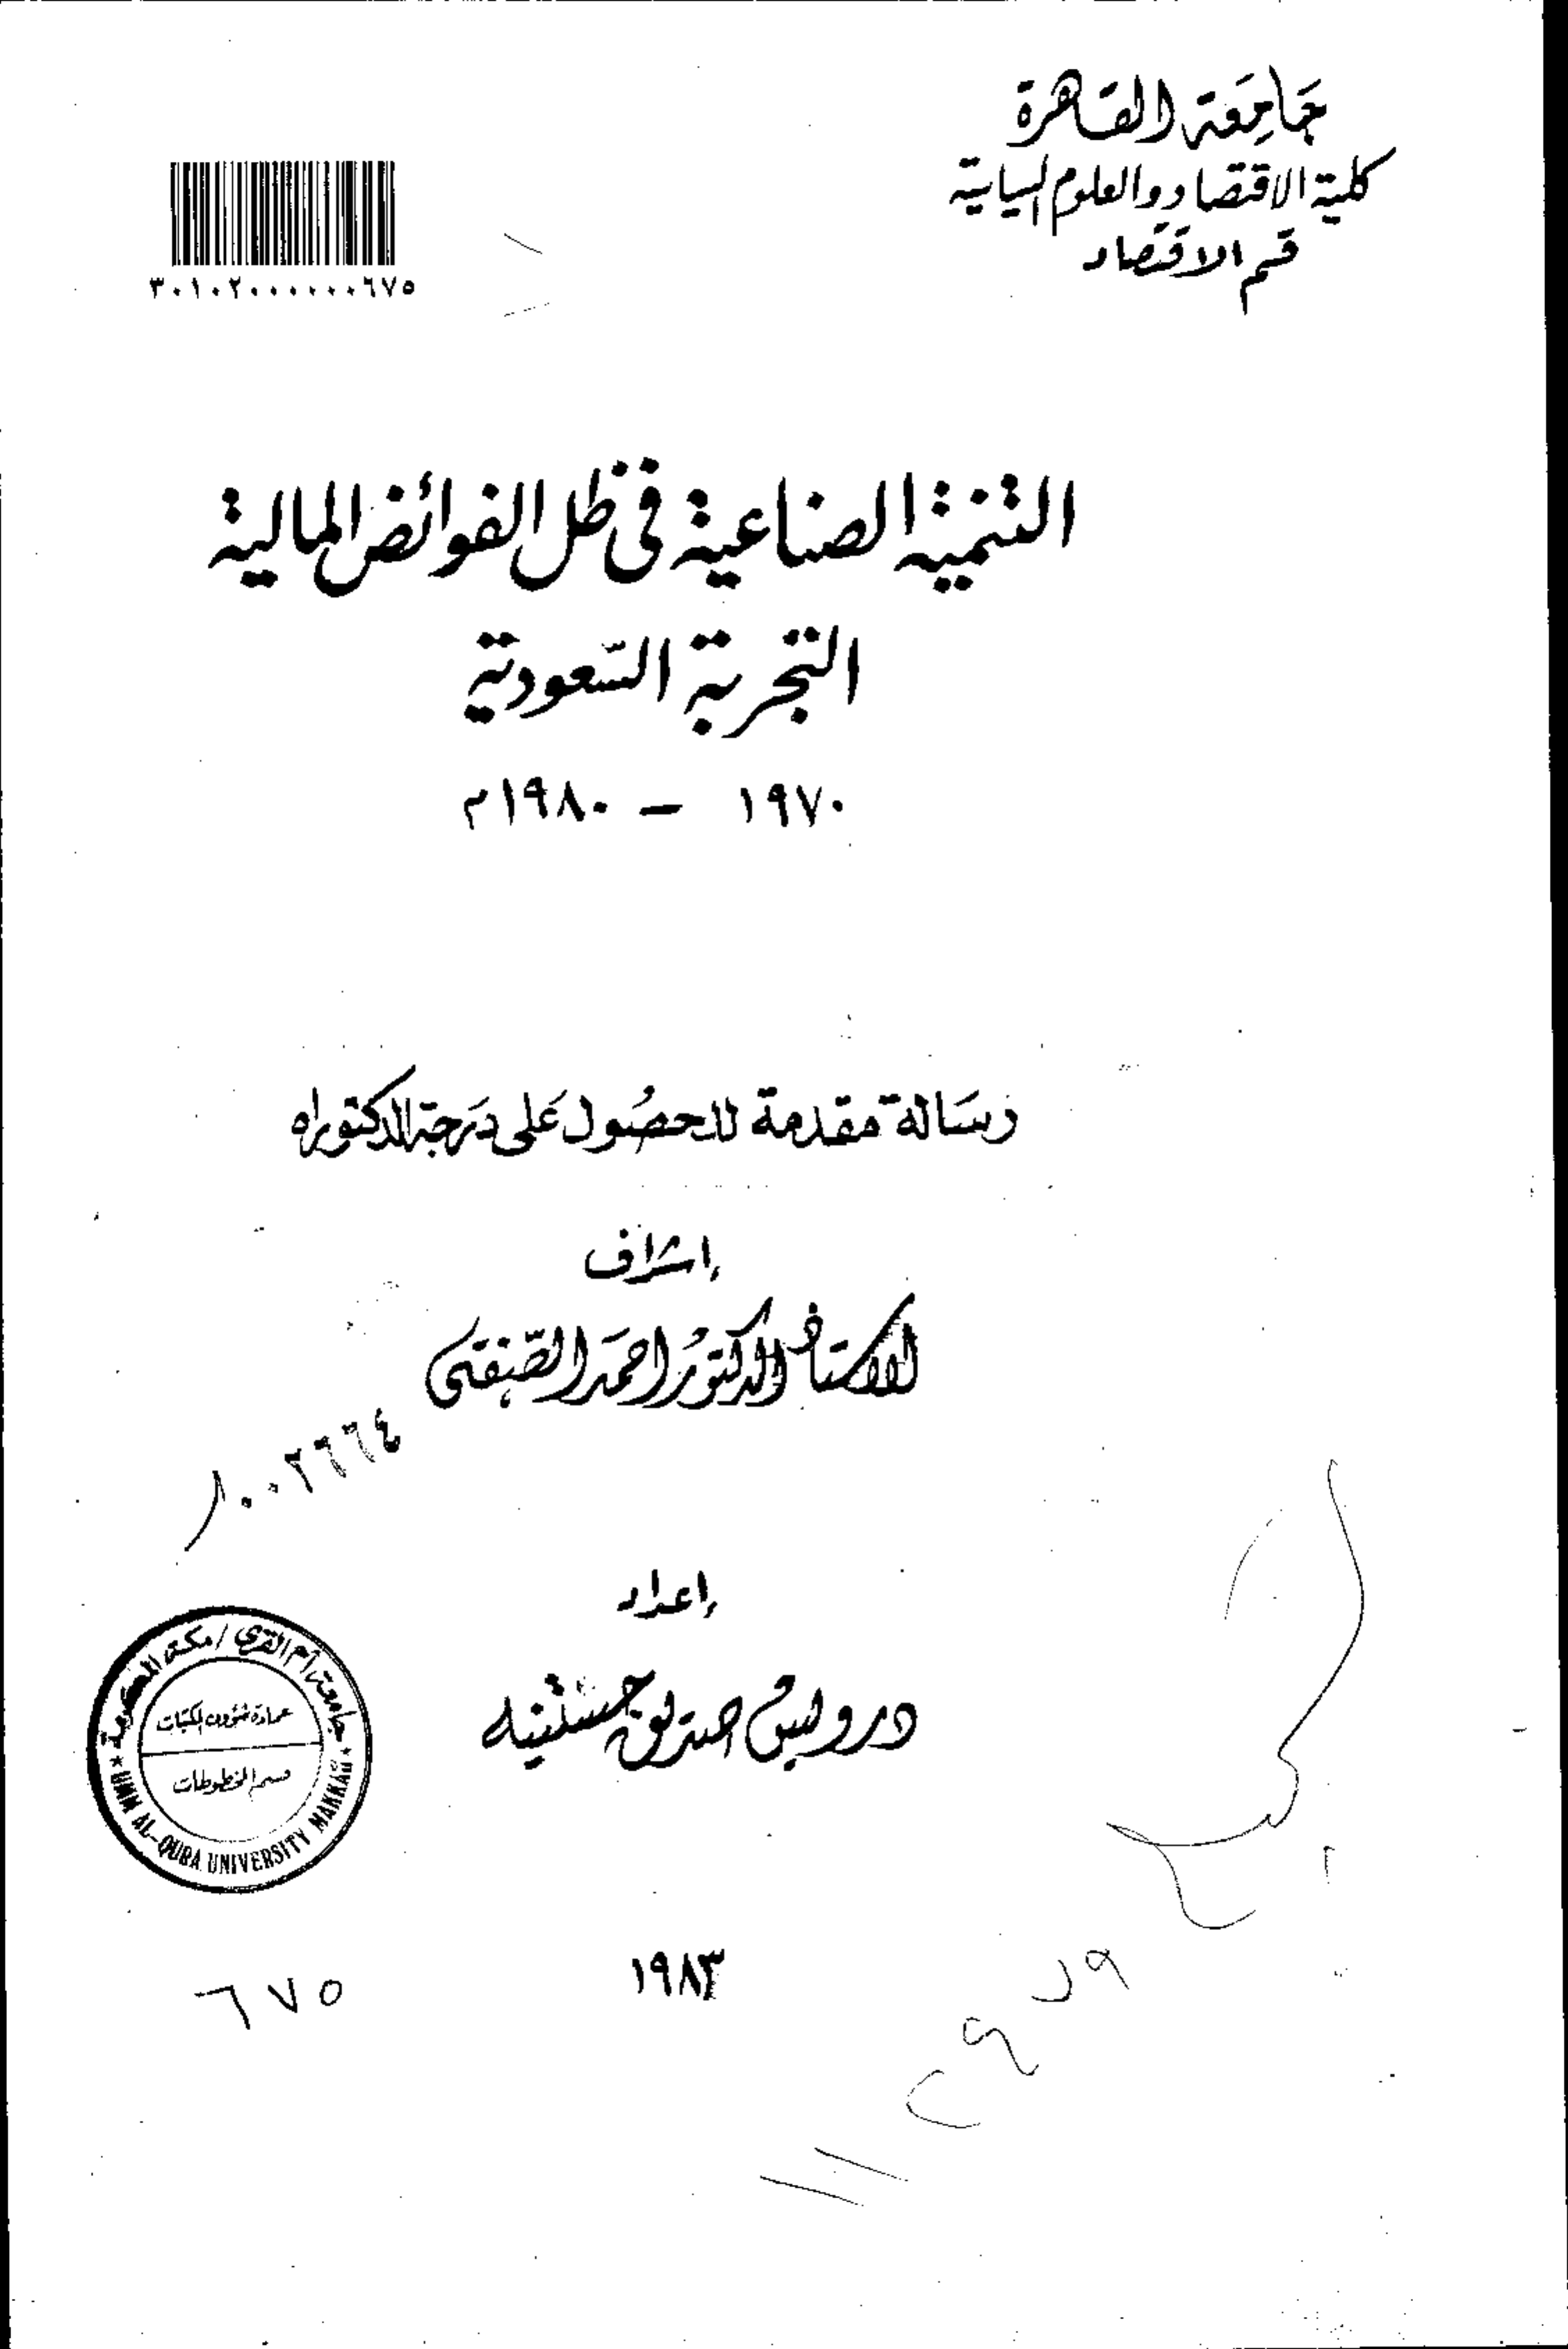 جامعة القاهرة
كلية الاقتصاد والعلوم السياسية
قسم الاقتصاد
٣٠١٠٢٠٠٠٠٠٠٦٧٥
التنمية الصناعية فى ظل الفوائض المالية
التجربة السعودية
١٩٧٠ – ١٩٨٠م
رسالة مقدمة للحصول على درجة الدكتوراه
إشراف
الاستاذ الدكتور احمد الصفتى
١٠٠٢٦٦٤
إعداد
درويش صديق جستنيه
جامعة أم القرى / مكة المكرمة
عمادة شؤون المكتبات
قسم المخطوطات
* UMM AL-QURA UNIVERSITY MAKKAH *
١٩٨٣
٦٧٥